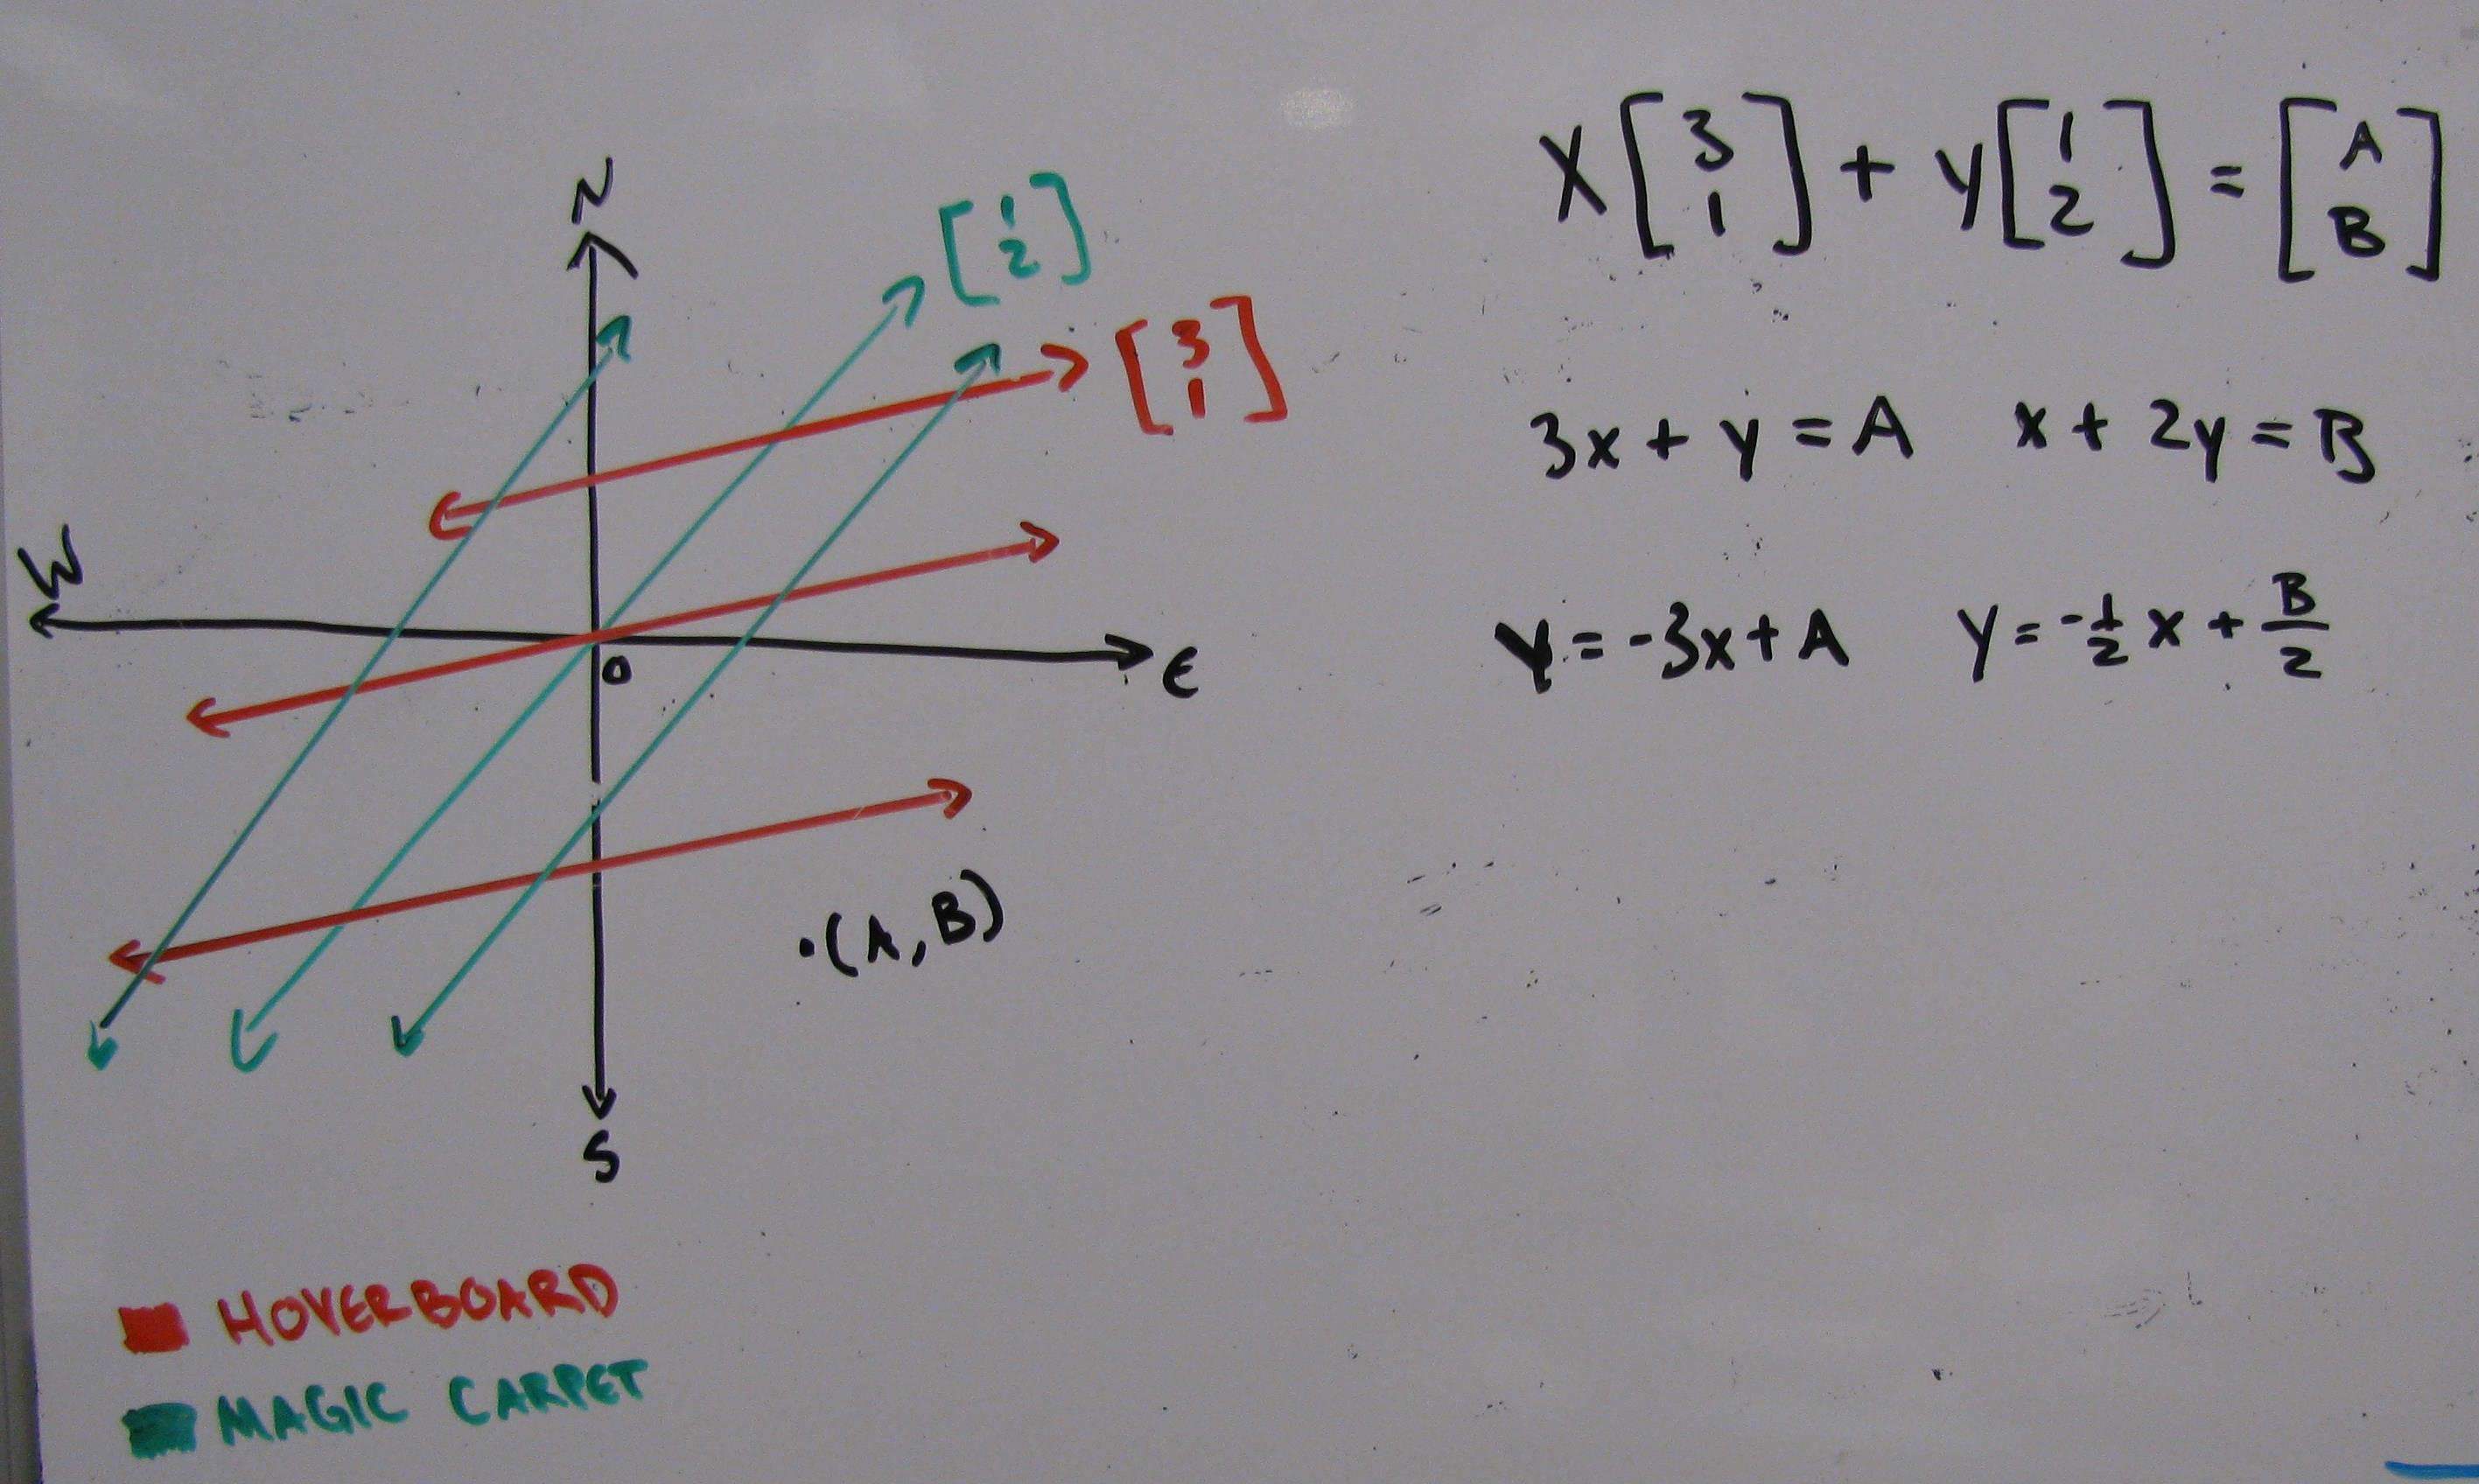 N
[1
2]
[3
1]
W
0
E
·(A, B)
S
HOVERBOARD
MAGIC CARPET
X[3
1] + y[1
2] = [A
B]
3x + y = A    x + 2y = B
y = -3x + A    y = -1/2 x + B/2